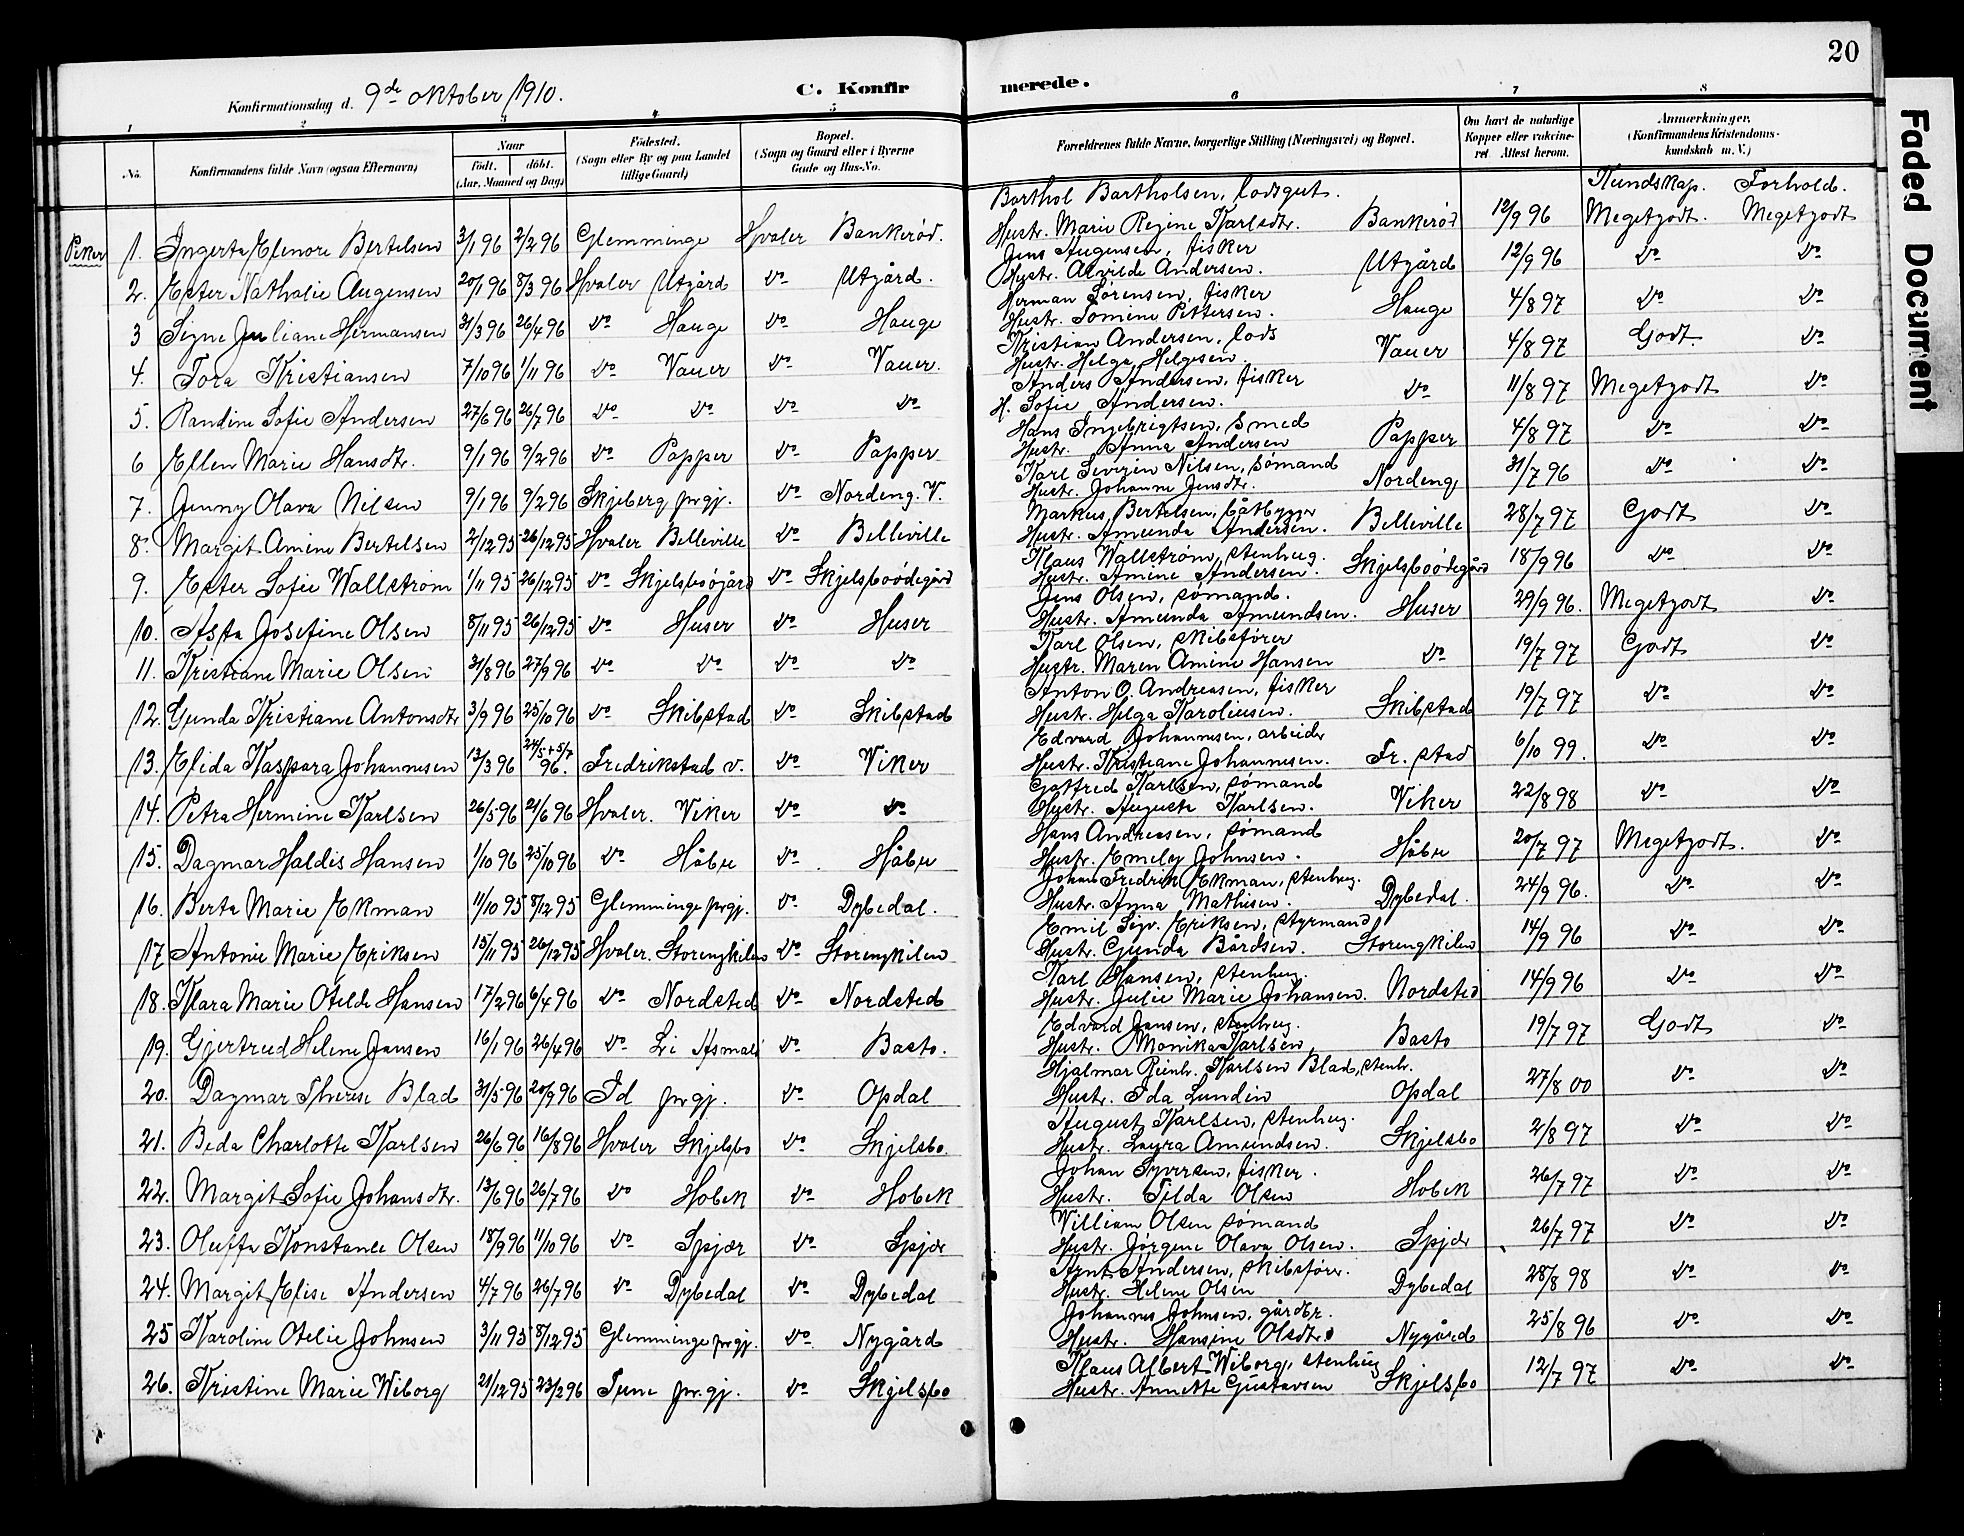 20
Faded Document
Konfirmationsdag d. 9de oktober 1910.
C. Konfirmerede.
1 2 3 4 5 6 7 8
No. Konfirmandens fulde Navn (ogsaa Efternavn) Naar født. døbt. (Aar, Maaned og Dag) Fødested. (Sogn eller By og paa Landet tillige Gaard) Bopæl. (Sogn og Gaard eller i Byerne Gade og Hus-No. Forældrenes fulde Navne, borgerlige Stilling (Næringsvei) og Bopæl. Om havt de naturlige Kopper eller vaccineret. Attest herom. Anmærkninger. (Konfirmandens Kristendomskundskab m. V.)
Kundskap. Forhold.
Piker
Barthol Bartholsen, lodsgut.
1. Ingerta Elenore Bertelsen 3/1 96 2/2 96 Glemminge Hvaler Bankerød. Hustr. Marie Regine Karlsdtr. Bankerød 12/9 96 Megetgodt. Megetgodt
Jens Augensen, fisker
2. Ester Nathalie Augensen 20/1 96 8/3 96 Hvaler Utgård do Utgård. Hustr. Alvilde Andersen. Utgård 12/9 96 do do
Herman Sørensen, fisker
3 Signe Juliane Hermansen 31/3 96 26/4 96 do Hauge do Hauge Hustr. Tomine Pettersen. Hauge 4/8 97 do do
Kristian Andersen, lods
4. Tora Kristiansen 7/10 96 1/11 96 do Vauer do Vauer. Hustr. Helga Helgesen. Vauer 4/8 97 Godt do
Anders Andersen, fisker
5. Randine Sofie Andersen 27/6 96 26/7 96 do do do do H. Sofie Andersen. do 11/8 97 Megetgodt do
Hans Ingebrigtsen, smed
6 Ellen Marie Hansdtr. 9/1 96 9/2 96 do Papper do Papper Hustr. Anna Andersen Papper 4/8 97 do do
Karl Severin Nilsen, sømand
7. Jenny Olava Nilsen 9/1 96 9/2 96 Skjeberg prgj. do Nordeng. V. Hustr. Johanne Jensdtr. Nordeng 31/7 96 do do
Markus Bertelsen, båtbygger
8. Margit Amine Bertelsen 2/12 95 26/12 95 Hvaler Belleville do Belleville Hustr. Amunda Andersen. Belleville 28/7 97 Godt do
Klaus Wallstrøm, stenhug.
9. Ester Sofie Wallstrøm 1/11 95 26/12 95 do do Skjelsboødegård Hustr. Amine Andersen. Skjelsboødegård 18/9 96 do do
Jens Olsen, sømand.
10. Asta Josefine Olsen 8/11 95 26/12 95 do Huser do Huser Hustr. Amunda Amundsen. Huser 29/9 96. Megetgodt do
Karl Olsen, skibsfører
11. Kristiane Marie Olsen 31/8 96 27/9 96 do do do do Hustr. Maren Amine Hansen do 19/7 97 Godt do
Anton O. Andreasen, fisker
12. Gunda Kristiane Antonsdtr 3/9 96 25/10 96 do Skibstad do Skibstad Hustr. Helga Karoliusen. Skibstad 19/7 97 do do
Edvard Johannesen, arbeider
13. Elida Kaspara Johannesen 13/3 96 24/5 + 5/7 96. Fredrikstad v. do Viker Hustr. Kristiane Johannesen. Fr.stad 6/10 99. do do
Gotfred Karlsen, sømand
14. Petra Hermine Karlsen 26/5 96 21/6 96 Hvaler. Viker do do Hustr. Augusta Karlsen. Viker 22/8 98 do do
Hans Andreasen, sømand
15. Dagmar Haldis Hansen 1/10 96 25/10 96 do Håbu do Håbu Hustr. Emely Johnsen. Håbu 20/7 97 Megetgodt. do
Johan Fredrik Ekman, stenhug.
16. Berta Marie Ekman 11/10 95 8/12 95 Glemminge prgj. do Dybedal. Hustr. Anna Mathisen. Dybedal. 24/9 96. do do
Emil Sigv. Eriksen, styrmand
17 Antonie Marie Eriksen 15/11 95 26/12 95 Hvaler. Storengkilen do Storengkilen Hustr. Gunda Bårdsen. Storengkilen 14/9 96 do do
Karl Hansen, stenhug.
18. Klara Marie Otelde Hansen 17/2 96 6/4 96 do Nordsted do Nordsted Hustr. Julie Marie Johansen. Nordsted 14/9 96 do do
Edvard Jansen, stenhug.
19. Gjertrud Helene Jansen 16/1 96 26/4 96 do Li Asmalø do Basto. Hustr. Monika Karlsen Basto 19/7 97 Godt do
Hjalmar Reinh. Karlsen Blad, stenh.
20. Dagmar Therese Blad 31/5 96 20/9 96 Id prgj. do Opdal Hustr. Ida Lundin Opdal 27/8 00 do do
August Karlsen, stenhug.
21. Beda Charlotte Karlsen 26/6 96 16/8 96 Hvaler Skjelsbo do Skjelsbo Hustr. Laura Amundsen. Skjelsbo 2/8 97 do do
Johan Syversen, fisker.
22. Margit Sofie Johansdtr. 13/6 96 26/7 96 do Hobek do Hobek Hustr. Tilda Olsen Hobek 26/7 97 do do
William Olsen sømand
23. Oluffa Konstanse Olsen 18/9 96 11/10 96 do Spjær do Spjær Hustr. Jørgine Olava Olsen. Spjær 26/7 97 do do
Arnt Andersen, skibsfører.
24. Margit Elise Andersen 4/7 96 26/7 96 do Dybedal do Dybedal Hustr. Helene Olsen Dybedal 28/8 98 do do
Johannes Johnsen, gårdbr.
25 Karoline Otelie Johnsen 3/11 95 8/12 95 Glemminge prgj. do Nygård Hustr. Hansine Olsdtr. Nygård 25/8 96 do do
Klaus Albert Wiborg, stenhug
26. Kristine Marie Wiborg 21/12 95 23/2 96 Tune prgj. do Skjelsbo Hustr. Annette Gustavsen Skjelsbo 12/7 97 do do